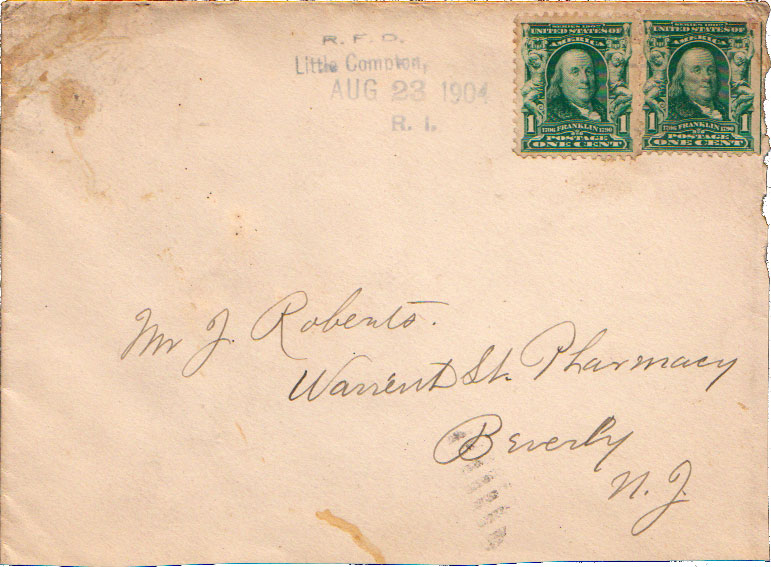 R. F. D.
Little Compton,
AUG 23 1904
R. I.
SERIES 1902
UNITED STATES OF
AMERICA
1 1706 FRANKLIN 1790 1
POSTAGE
ONE CENT
SERIES 1902
UNITED STATES OF
AMERICA
1 1706 FRANKLIN 1790 1
POSTAGE
ONE CENT
Mr J. Roberts.
Warren St. Pharmacy
Beverly
N. J.